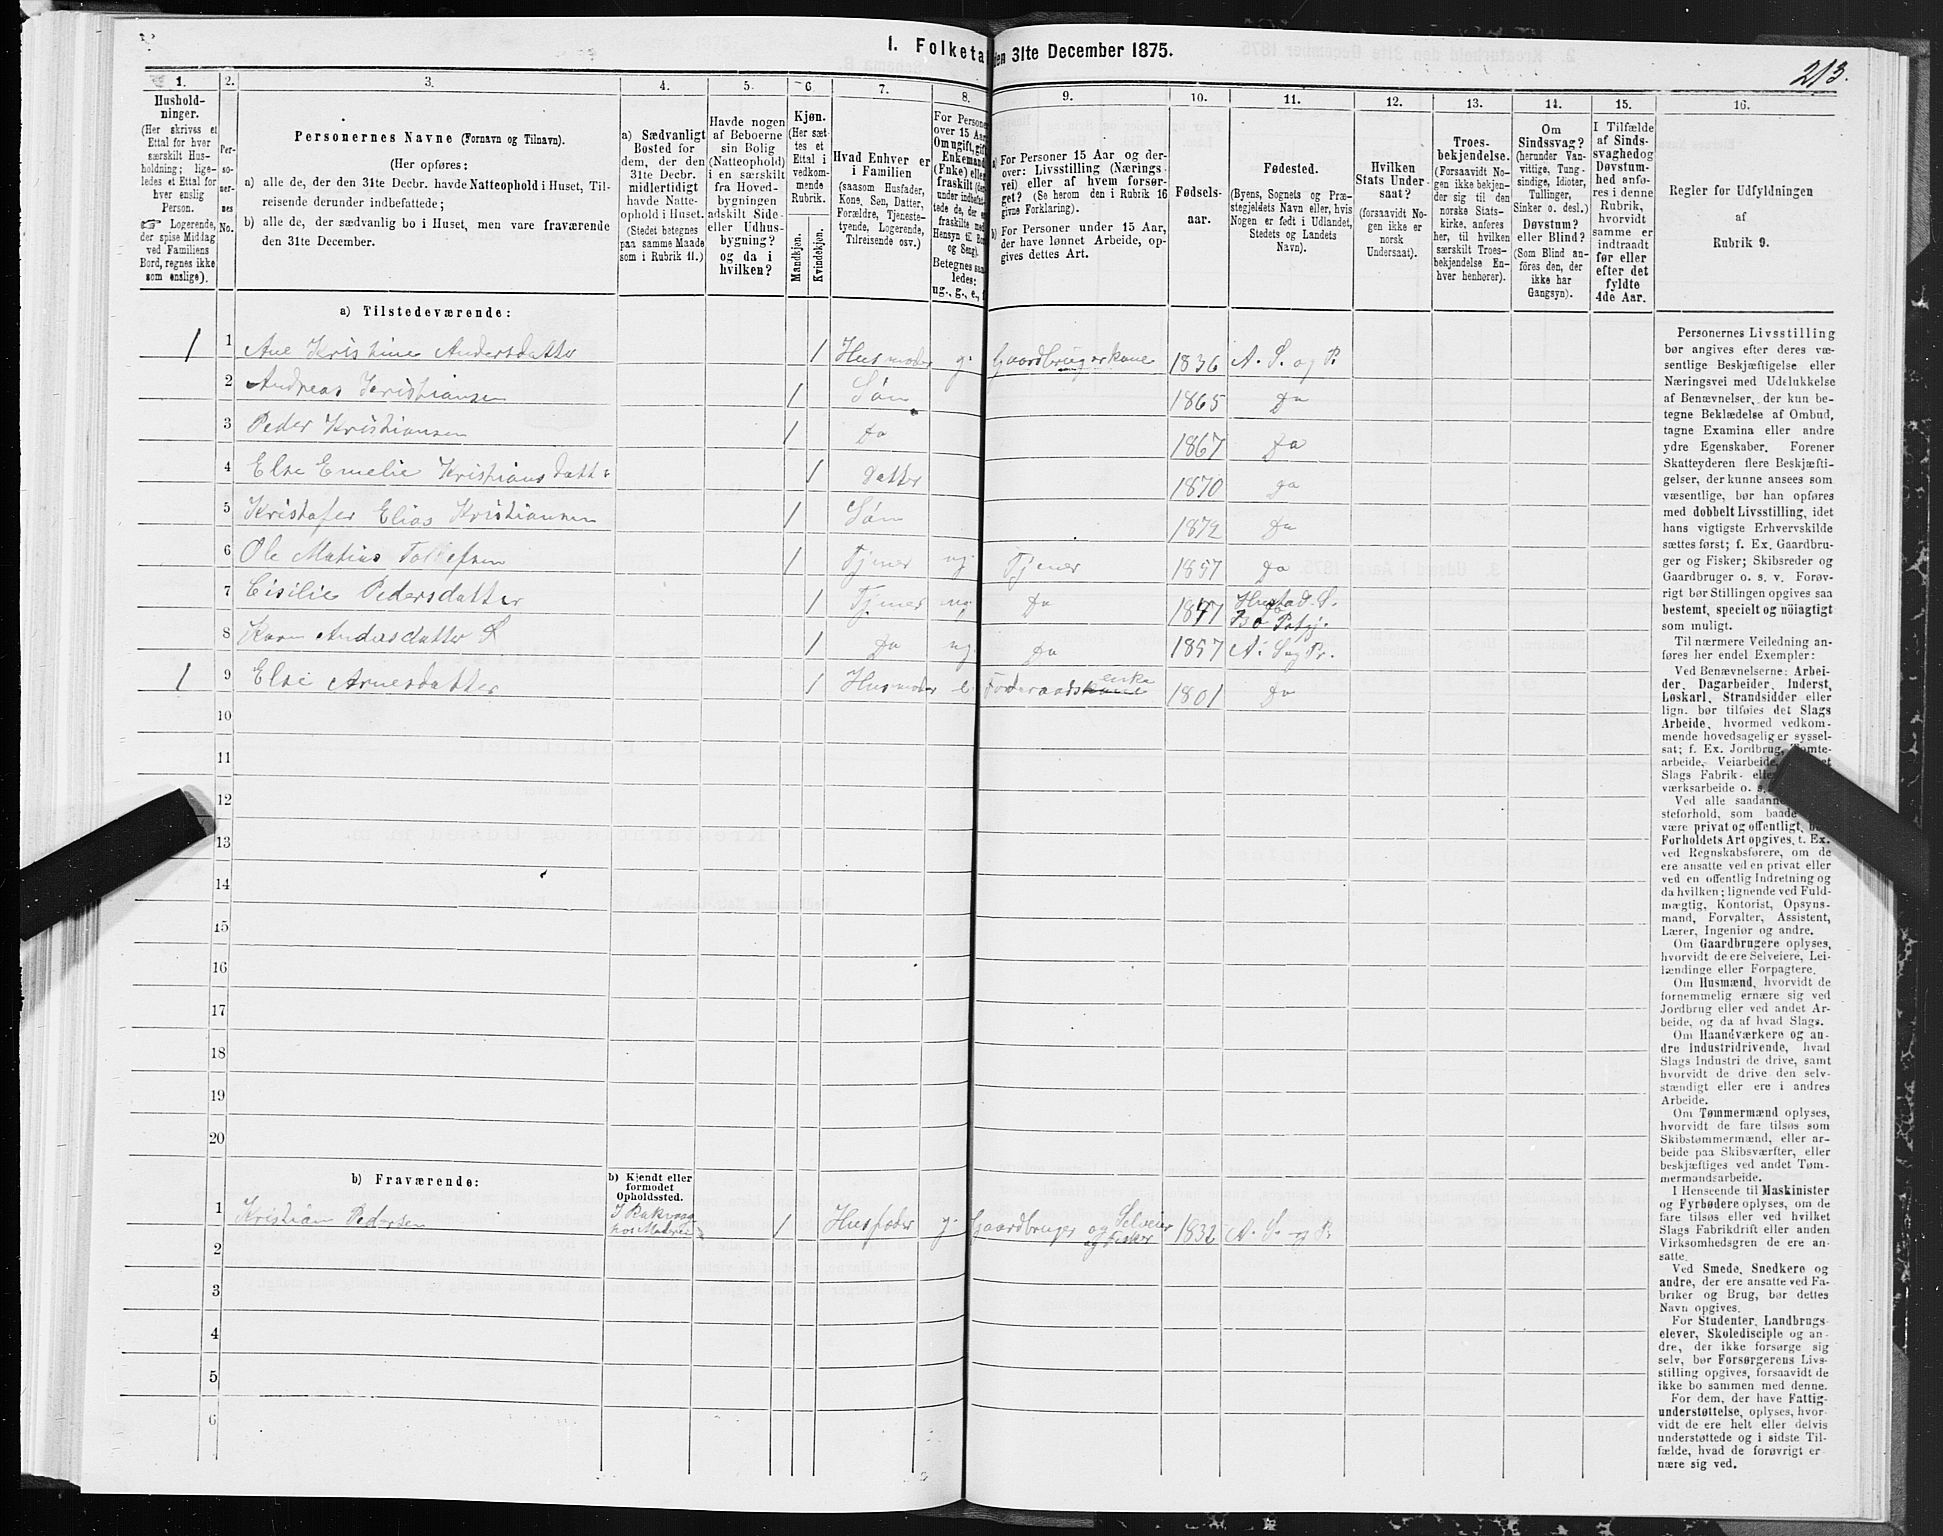 1. Folketa den 31te December 1875.
213.
1.
Hushold-
ninger.
(Her skrives et
Ettal for hver
særskilt Hus-
holdning; lige-
ledes et Ettal for
hver enslig
Person.
☞ Logerende,
der spise Middag
ved Familiens
Bord, regnes ikke
som enslige).
2.
Per-
so-
ner-
nes
No.
3.
Personernes Navne (Fornavn og Tilnavn).
(Her opføres:
a) alle de, der den 31te Decbr. havde Natteophold i Huset, Til-
reisende derunder indbefattede;
b) alle de, der sædvanlig bo i Huset, men vare fraværende
den 31te December.
4.
a) Sædvanligt
Bosted for
dem, der den
31te Decbr.
midlertidigt
havde Natte-
ophold i Huset.
(Stedet betegnes
paa samme Maade
som i Rubrik 11.)
5.
Havde nogen
af Beboerne
sin Bolig
(Natteophold)
i en særskilt
fra Hoved-
bygningen
adskilt Side-
eller Udhus-
bygning?
og da i
hvilken?
6
Kjøn.
(Her sæt-
tes et
Ettal i
vedkom-
mende
Rubrik.
Mandkjøn.
Kvindekjøn.
7.
Hvad Enhver er
i Familien
(saasom Husfader,
Kone, Søn, Datter,
Forældre, Tjeneste-
tyende, Logerende,
Tilreisende osv.)
8.
For Persone
over 15 Aar
Om ugift, gift
Enkemand
(Enke) elle
fraskilt (der
under indbefat-
tede de, der e
fraskilte med
Hensyn til Bo
og Seng).
Betegnes saa
ledes:
ug., g., e.,
9.
a) For Personer 15 Aar og der-
over: Livsstilling (Nærings-
vei) eller af hvem forsør-
get? (Se herom den i Rubrik 16
givne Forklaring).
b) For Personer under 15 Aar,
der have lønnet Arbeide, op-
gives dettes Art.
10.
Fødsels-
aar.
11.
Fødested.
(Byens, Sognets og Præ-
stegjeldets Navn eller, hvis
Nogen er født i Udlandet,
Stedets og Landets
Navn).
12.
Hvilken
Stats Under-
saat?
(forsaavidt No-
gen ikke er
norsk
Undersaat).
13.
Troes-
bekjendelse.
(Forsaavidt No-
gen ikke bekjen-
der sig til den
norske Stats-
kirke, anføres
her, til hvilken
særskilt Troes-
bekjendelse En-
hver henhører).
14.
Om
Sindssvag?
(herunder Van-
vittige, Tung-
sindige, Idioter,
Tullinger,
Sinker o. desl.)
Døvstum?
eller Blind?
(Som Blind an-
føres den, der
ikke har
Gangsyn).
15.
I Tilfælde
af Sinds-
svaghed og
Døvstum-
hed anfø-
res i denne
Rubrik,
hvorvidt
samme er
indtraadt
før eller
efter det
fyldte
4de Aar.
16.
Regler for Udfyldningen
af
Rubrik 9.
a) Tilstedeværende:
1 1 Ane Kristine Andersdatter 1 Husmoder g. Gaardbrugerkone 1836 A. S. og P.
2 Andreas Kristiansen 1 Søn 1865 Do
3 Peder Kristiansen 1 Do 1867 Do
4 Else Emelie Kristiansdatter 1 Datter 1870 Do
5 Kristofer Elias Kristiansen 1 Søn 1872 Do
6 Ole Matias Tollefsen 1 Tjener ug. Tjener 1857 Do
7 Cisilie Pedersdatter 1 Tjener ug. Do 1847 Hustad. S.
Bo Potgj.
8 Karn Andersdatter 1 Do ug. Do 1857 A. S. og Pr.
1 9 Else Arnesdatter 1 Husmoder e. Foderaadskone enke 1801 Do
10
11
12
13
14
15
16
17
18
19
20
b) Fraværende:
b) Kjendt eller
formodet
Opholdssted.
1 Kristian Pedersen I Rakvaag 1 Husfader g. Gaardbruger og Selveier 1832 A. S. og P.
og Fisker
2
3
4
5
6
Personernes Livsstilling
bør angives efter deres væ-
sentlige Beskjæftigelse eller
Næringsvei med Udelukkelse
af Benævnelser, der kun be-
tegne Beklædelse af Ombud,
tagne Examina eller andre
ydre Egenskaber. Forener
Skatteyderen flere Beskjæfti-
gelser, der kunne ansees som
væsentlige, bør han opføres
med dobbelt Livsstilling, idet
hans vigtigste Erhvervskilde
sættes først; f. Ex. Gaardbru-
ger og Fisker; Skibsreder og
Gaardbruger o. s. v. Forøv-
rigt bør Stillingen opgives saa
bestemt, specielt og nöiagtigt
som muligt.
Til nærmere Veiledning an-
føres her endel Exempler:
Ved Benævnelserne: Arbei-
der, Dagarbeider, Inderst,
Løskarl, Strandsidder eller
lign. bør tilføies det Slags
Arbeide, hvormed vedkom-
mende hovedsagelig er syssel-
sat; f. Ex. Jordbrug, Tomte-
arbeide, Veiarbeide,
Slags Fabrik- elle
værksarbeide o. s.
Ved alle saadanne
steforhold, som baade
være privat og offentligt, bør
Forholdets Art opgives, t. Ex.
ved Regnskabsførere, om de
ere ansatte ved en privat eller
ved en offentlig Indretning og
da hvilken; lignende ved Fuld-
mægtig, Kontorist, Opsyns-
mand, Forvalter, Assistent,
Lærer, Ingeniør og andre.
Om Gaardbrugere oplyses,
hvorvidt de ere Selveiere, Lei-
lændinge eller Forpagtere.
Om Husmænd, hvorvidt de
fornemmelig ernære sig ved
Jordbrug eller ved andet Ar-
beide, og da af hvad Slags.
Om Haandværkere og an-
dre Industridrivende, hvad
Slags Industri de drive, samt
hvorvidt de drive den selv-
stændigt eller ere i andres
Arbeide.
Om Tømmermænd oplyses,
hvorvidt de fare tilsøs som
Skibstømmermænd, eller ar-
beide paa Skibsværfter, eller
beskjæftiges ved andet Tøm-
mermandsarbeide.
I Henseende til Maskinister
og Fyrbødere oplyses, om de
fare tilsøs eller ved hvilket
Slags Fabrikdrift eller anden
Virksomhedsgren de ere an-
satte.
Ved Smede, Snedkere og
andre, der ere ansatte ved Fa-
briker og Brug, bør dettes
Navn opgives.
For Studenter, Landbrugs-
elever, Skoledisciple og an-
dre, der ikke forsørge sig
selv, bør Forsørgerens Livs-
stilling opgives, forsaavidt de
ikke bo sammen med denne.
For dem, der have Fattig-
understøttelse, oplyses, hvor-
vidt de ere helt eller delvis
understøttede og i sidste Til-
fælde, hvad de forøvrigt er-
nære sig ved.